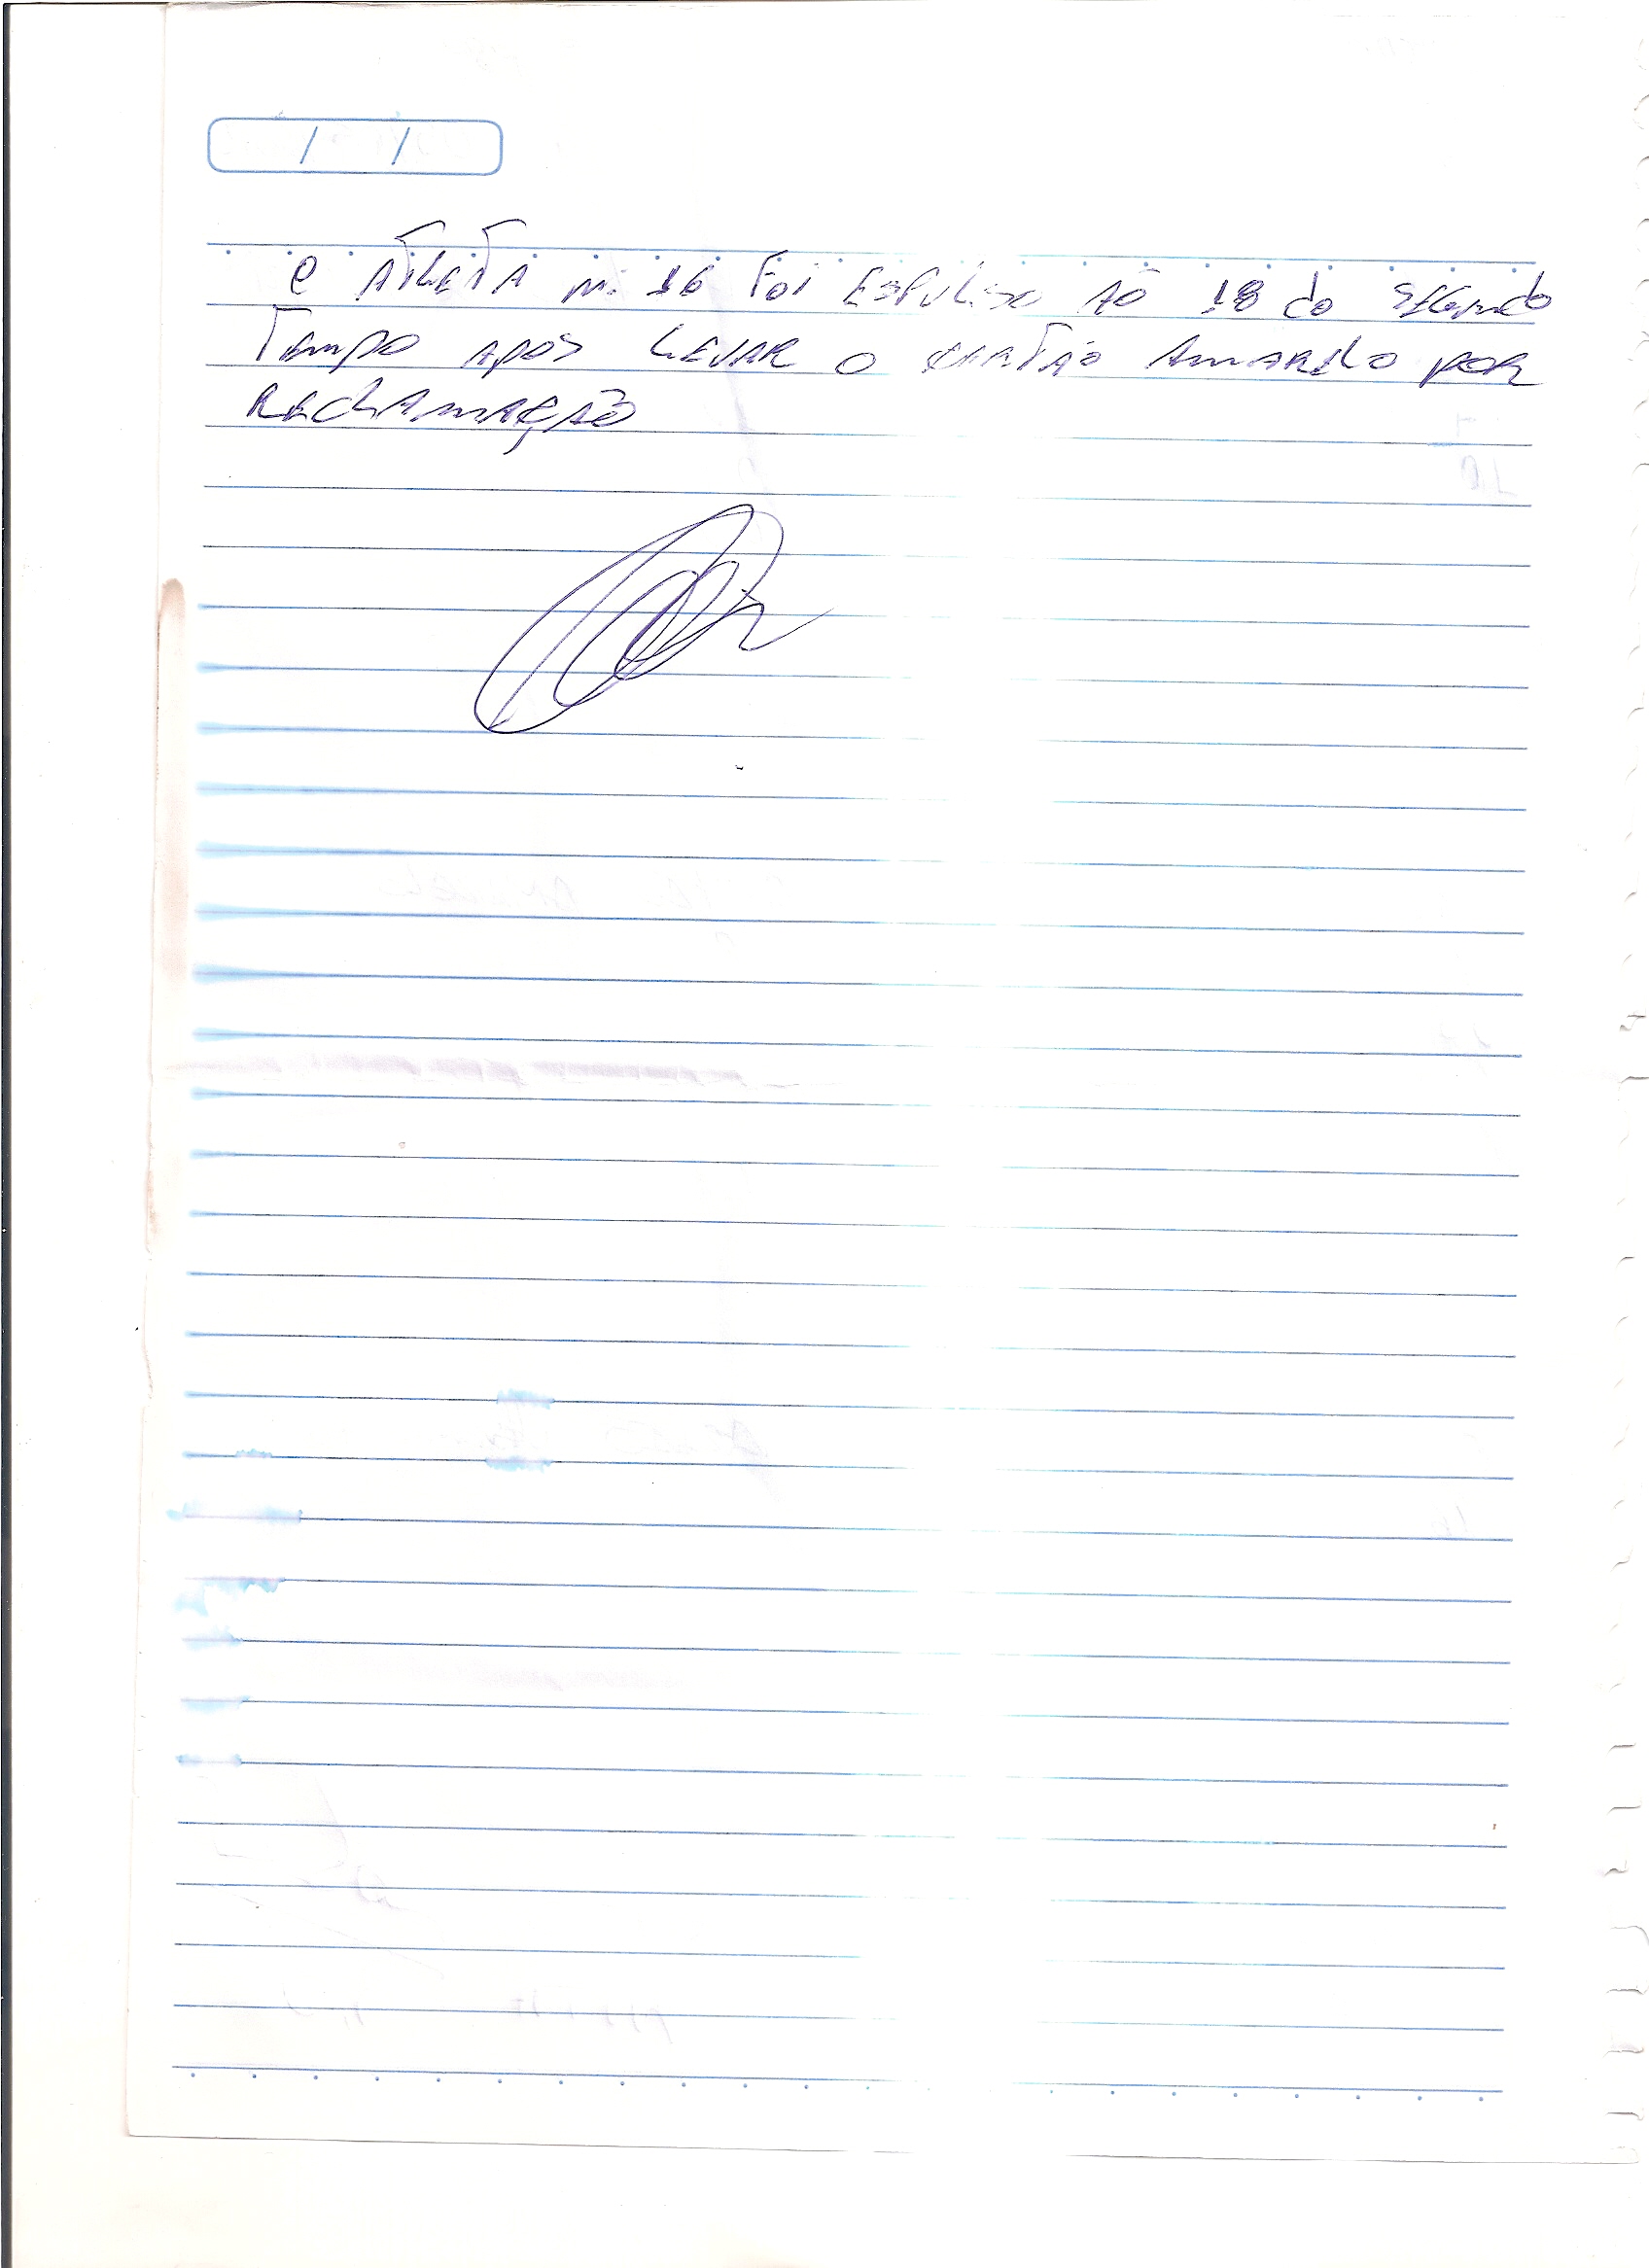 / /
O ATLETA n: 16 Foi ESPULSO AO 18 do SEGundo
TEMPO APOS LEVAR O CARTÃO AMARELO POR
RECLAMAÇÃO